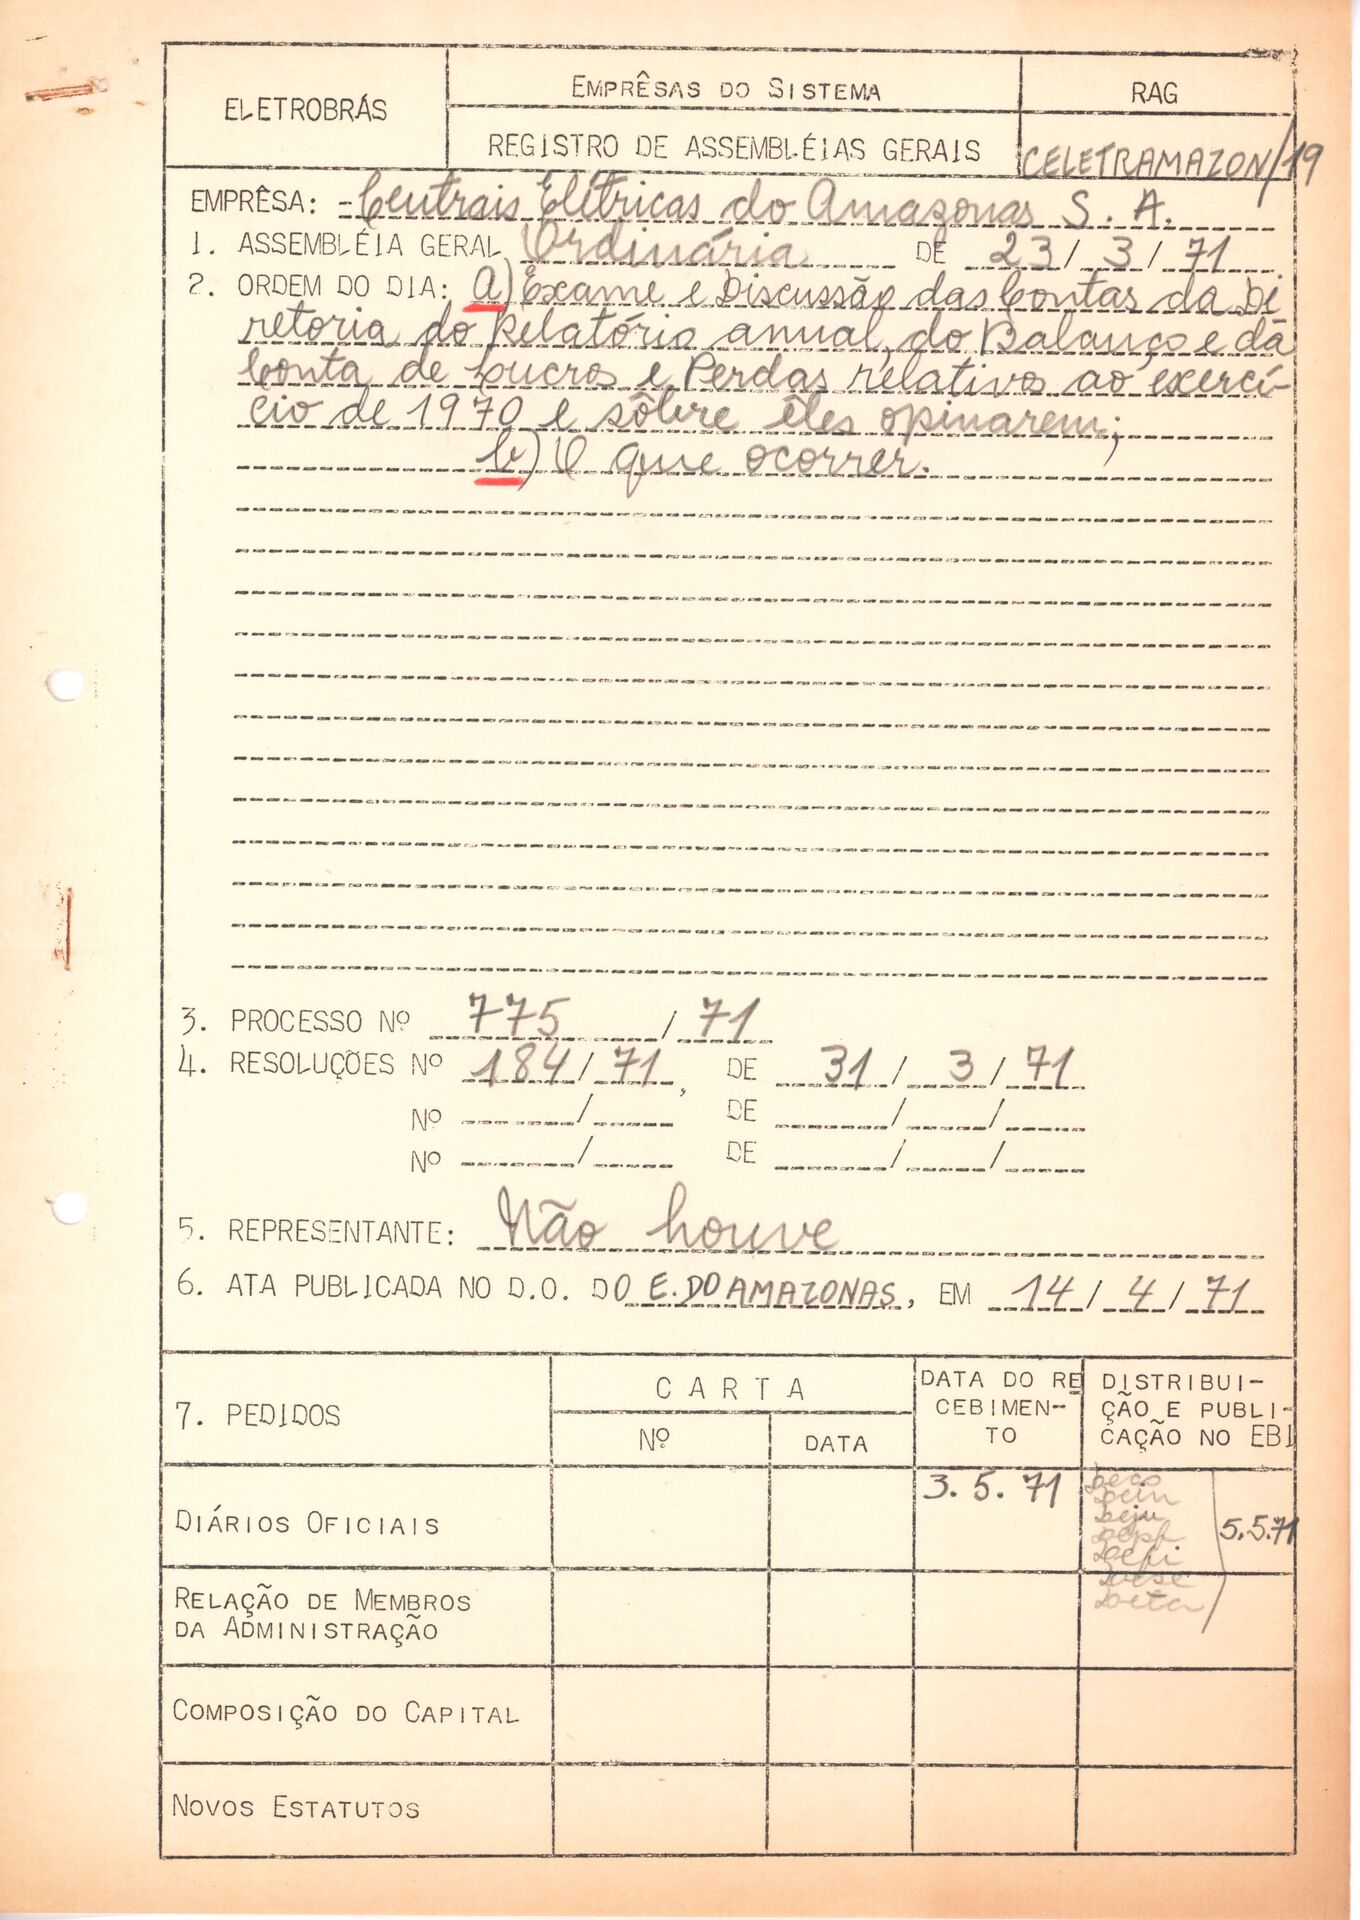 ELETROBRÁS
EMPRÊSAS DO SISTEMA
RAG
REGISTRO DE ASSEMBLÉIAS GERAIS
CELETRAMAZON/19
EMPRÊSA: - Centrais Elétricas do Amazonas S.A.
1. ASSEMBLÉIA GERAL Ordinária DE 23/3/71
2. ORDEM DO DIA: a) Exame e Discussão das Contas da Di
retoria do Relatório anual, do Balanço e da
Conta de Lucros e Perdas relativos ao exercí-
cio de 1970 e sôbre êles opinarem;
b) O que ocorrer.
3. PROCESSO Nº 775/71
4. RESOLUÇÕES Nº 184/71, DE 31/3/71
Nº / DE / /
Nº / DE / /
5. REPRESENTANTE: Não houve
6. ATA PUBLICADA NO D.O. DO E. DO AMAZONAS, EM 14/4/71
7. PEDIDOS
CARTA
Nº
DATA
DATA DO RE
CEBIMEN-
TO
DISTRIBUI-
ÇÃO E PUBLI-
CAÇÃO NO EBI
DIÁRIOS OFICIAIS
3.5.71
Deco
Dein
Deju
Depi
Dese
Deta
5.5.71
RELAÇÃO DE MEMBROS
DA ADMINISTRAÇÃO
COMPOSIÇÃO DO CAPITAL
NOVOS ESTATUTOS